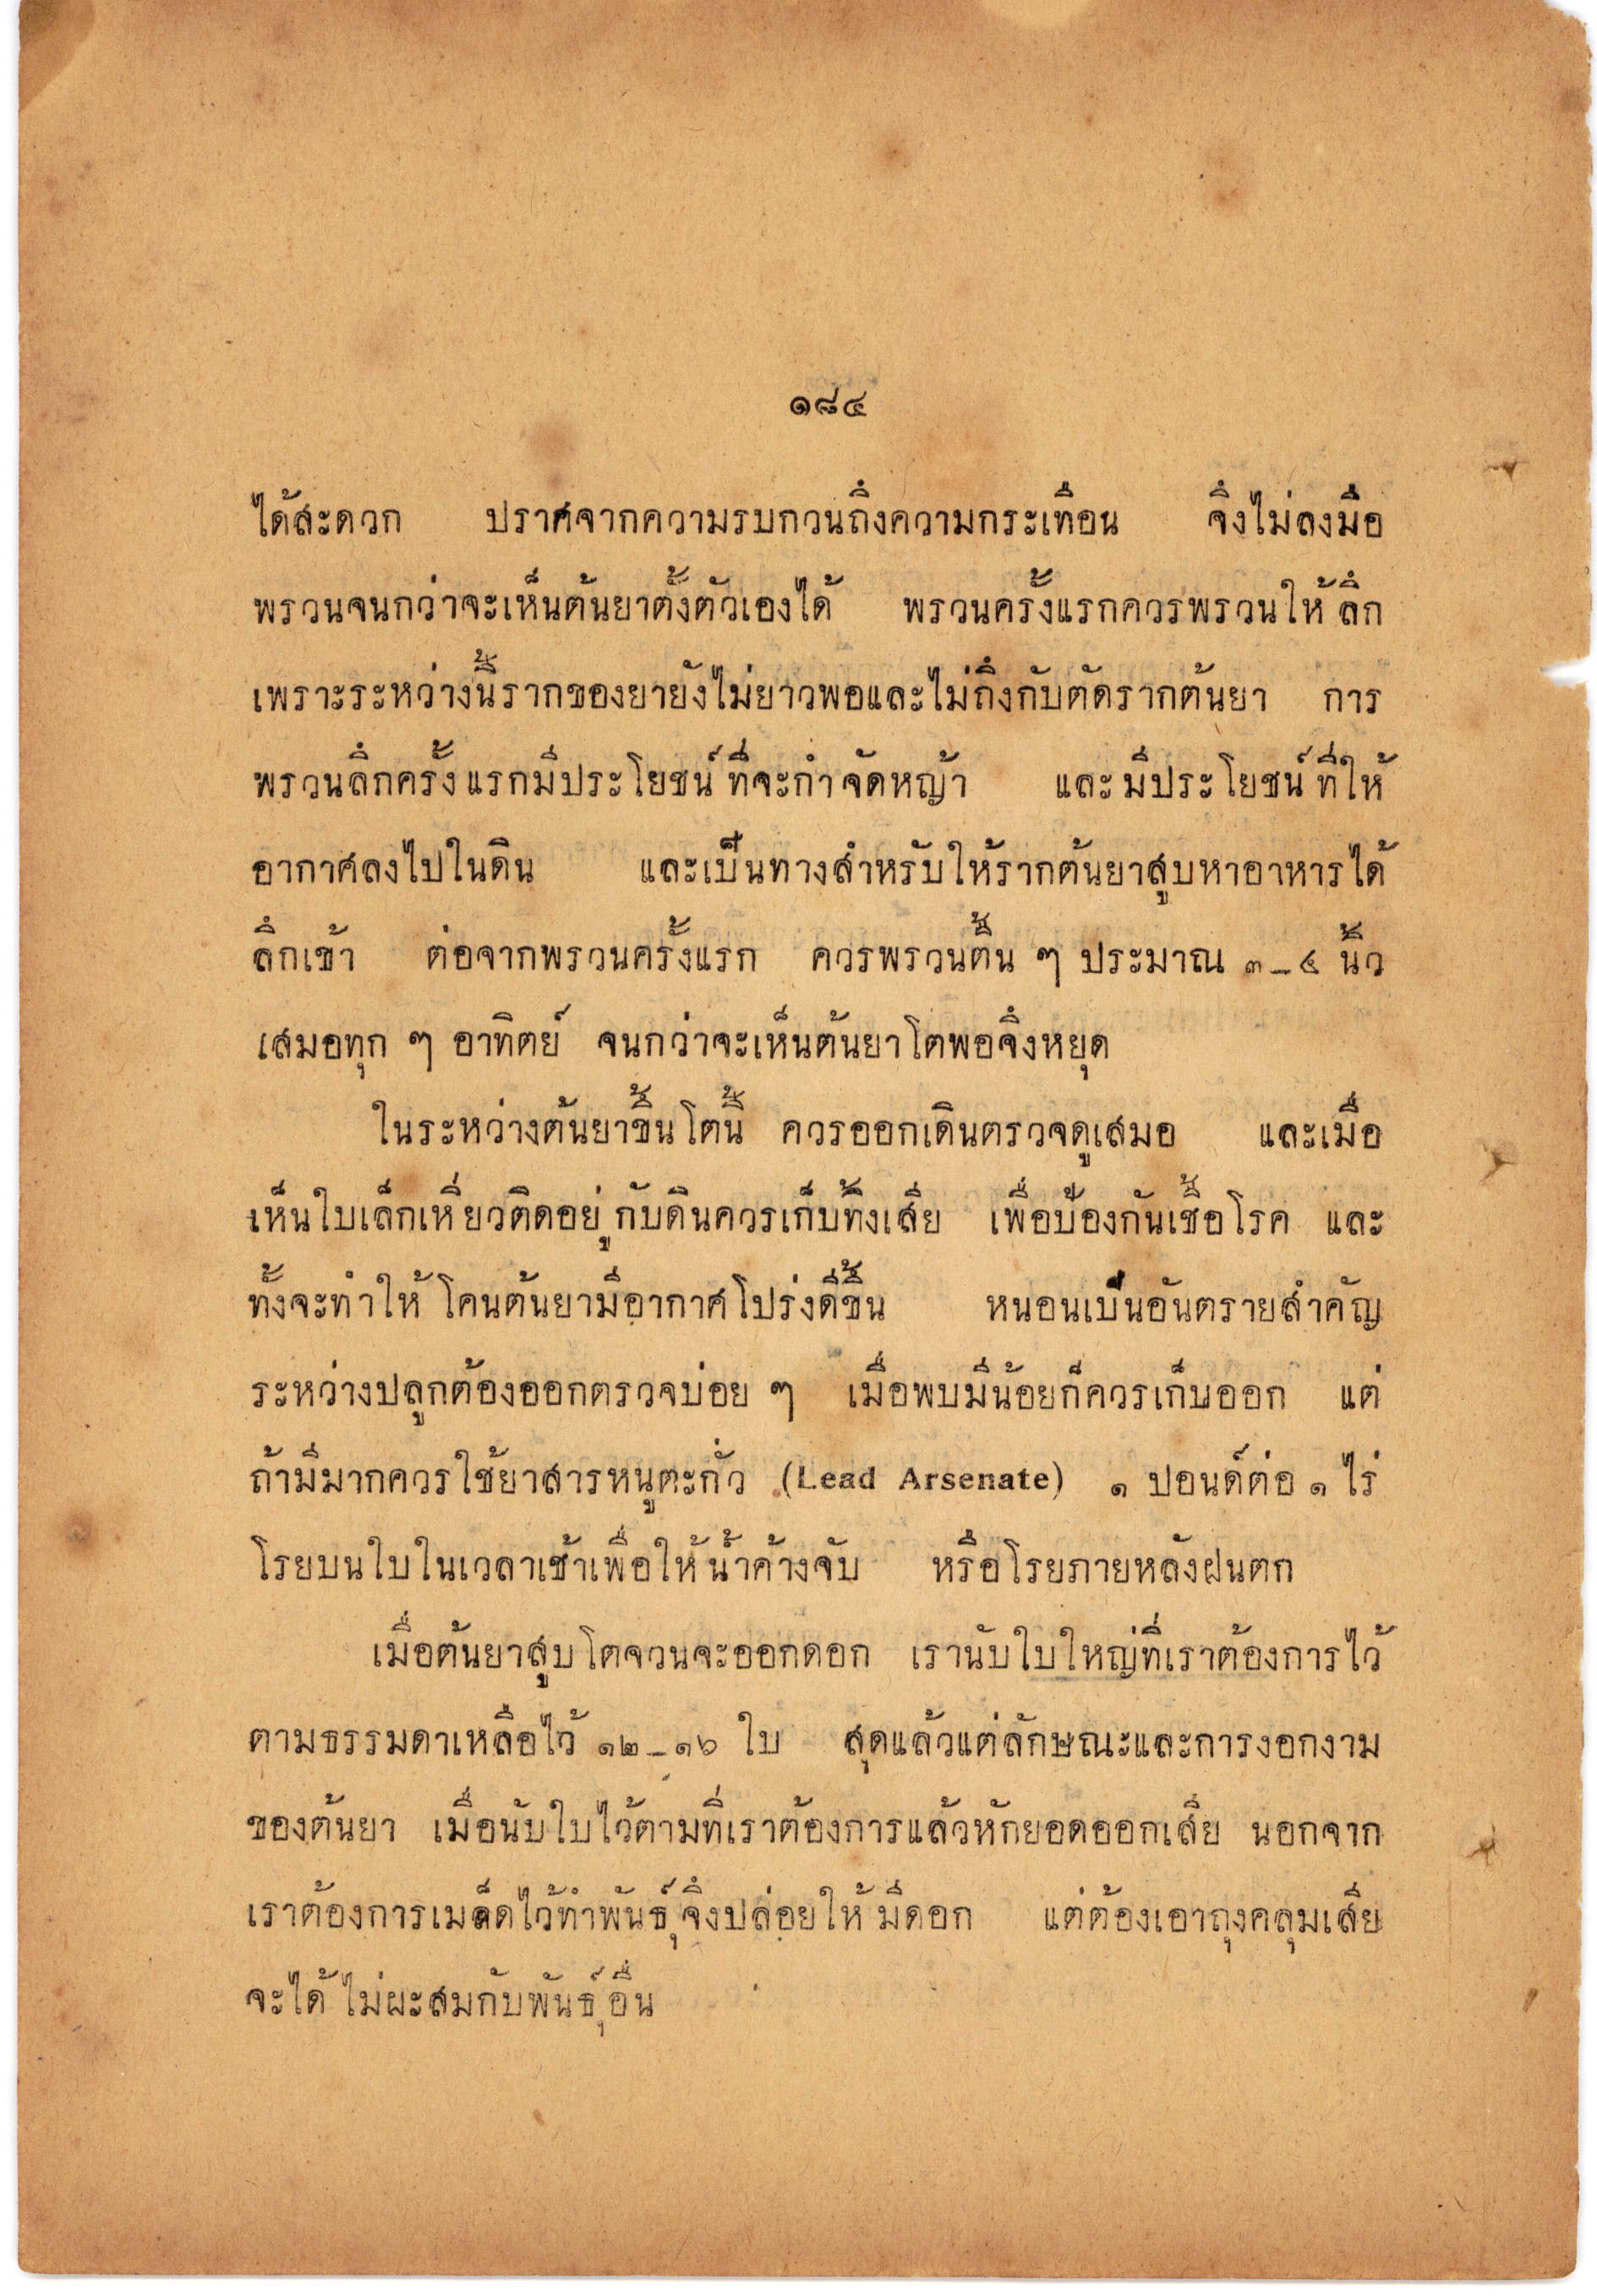 ๑๘๔
ได้สะดวก ปราศจากความรบกวนถึงความกระเทือน จึงไม่ลงมือ
พรวนจนกว่าจะเห็นต้นยาตั้งตัวเองได้ พรวนครั้งแรกควรพรวนให้ลึก
เพราะระหว่างนี้รากของยายังไม่ยาวพอและไม่ถึงกับตัดรากต้นยา การ
พรวนลึกครั้งแรกมีประโยชน์ที่จะกำจัดหญ้า และมีประโยชน์ที่ให้
อากาศลงไปในดิน และเป็นทางสำหรับให้รากต้นยาสูบหาอาหารได้
ลึกเข้า ต่อจากพรวนครั้งแรก ควรพรวนตื้น ๆ ประมาณ ๓-๔ นิ้ว
เสมอทุก ๆ อาทิตย์ จนกว่าจะเห็นต้นยาโตพอจึงหยุด
ในระหว่างต้นยาขึ้นโตนี้ ควรออกเดินตรวจดูเสมอ และเมื่อ
เห็นใบเล็กเหี่ยวติดอยู่กับดินควรเก็บทิ้งเสีย เพื่อป้องกันเชื้อโรค และ
ทั้งจะทำให้โคนต้นยามีอากาศโปร่งดีขึ้น หนอนเป็นอันตรายสำคัญ
ระหว่างปลูกต้องออกตรวจบ่อย ๆ เมื่อพบมีน้อยก็ควรเก็บออก แต่
ถ้ามีมากควรใช้ยาสารหนูตะกั่ว (Lead Arsenate) ๑ ปอนด์ต่อ ๑ ไร่
โรยบนใบในเวลาเช้าเพื่อให้น้ำค้างจับ หรือโรยภายหลังฝนตก
เมื่อต้นยาสูบโตจวนจะออกดอก เรานับใบใหญ่ที่เราต้องการไว้
ตามธรรมดาเหลือไว้ ๑๒-๑๖ ใบ สุดแล้วแต่ลักษณะและการงอกงาม
ของต้นยา เมื่อนับใบไว้ตามที่เราต้องการแล้วหักยอดออกเสีย นอกจาก
เราต้องการเมล็ดไว้ทำพันธุ์จึงปล่อยให้มีดอก แต่ต้องเอาถุงคลุมเสีย
จะได้ไม่ผะสมกับพันธุ์อื่น